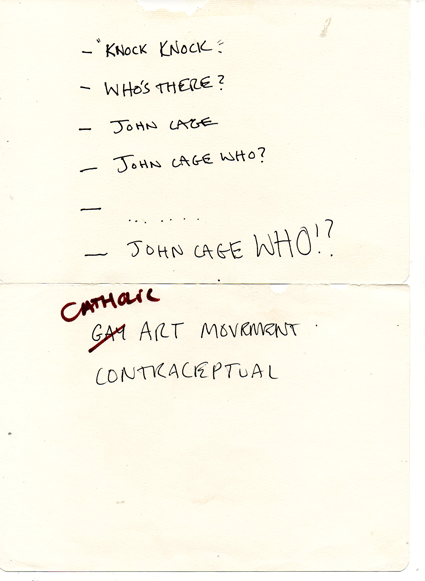 - "KNOCK KNOCK"
- WHO'S THERE?
- JOHN CAGE
- JOHN CAGE WHO?
- ... ....
- JOHN CAGE WHO!?
CATHOLIC
GAY ART MOVEMENT
CONTRACEPTUAL